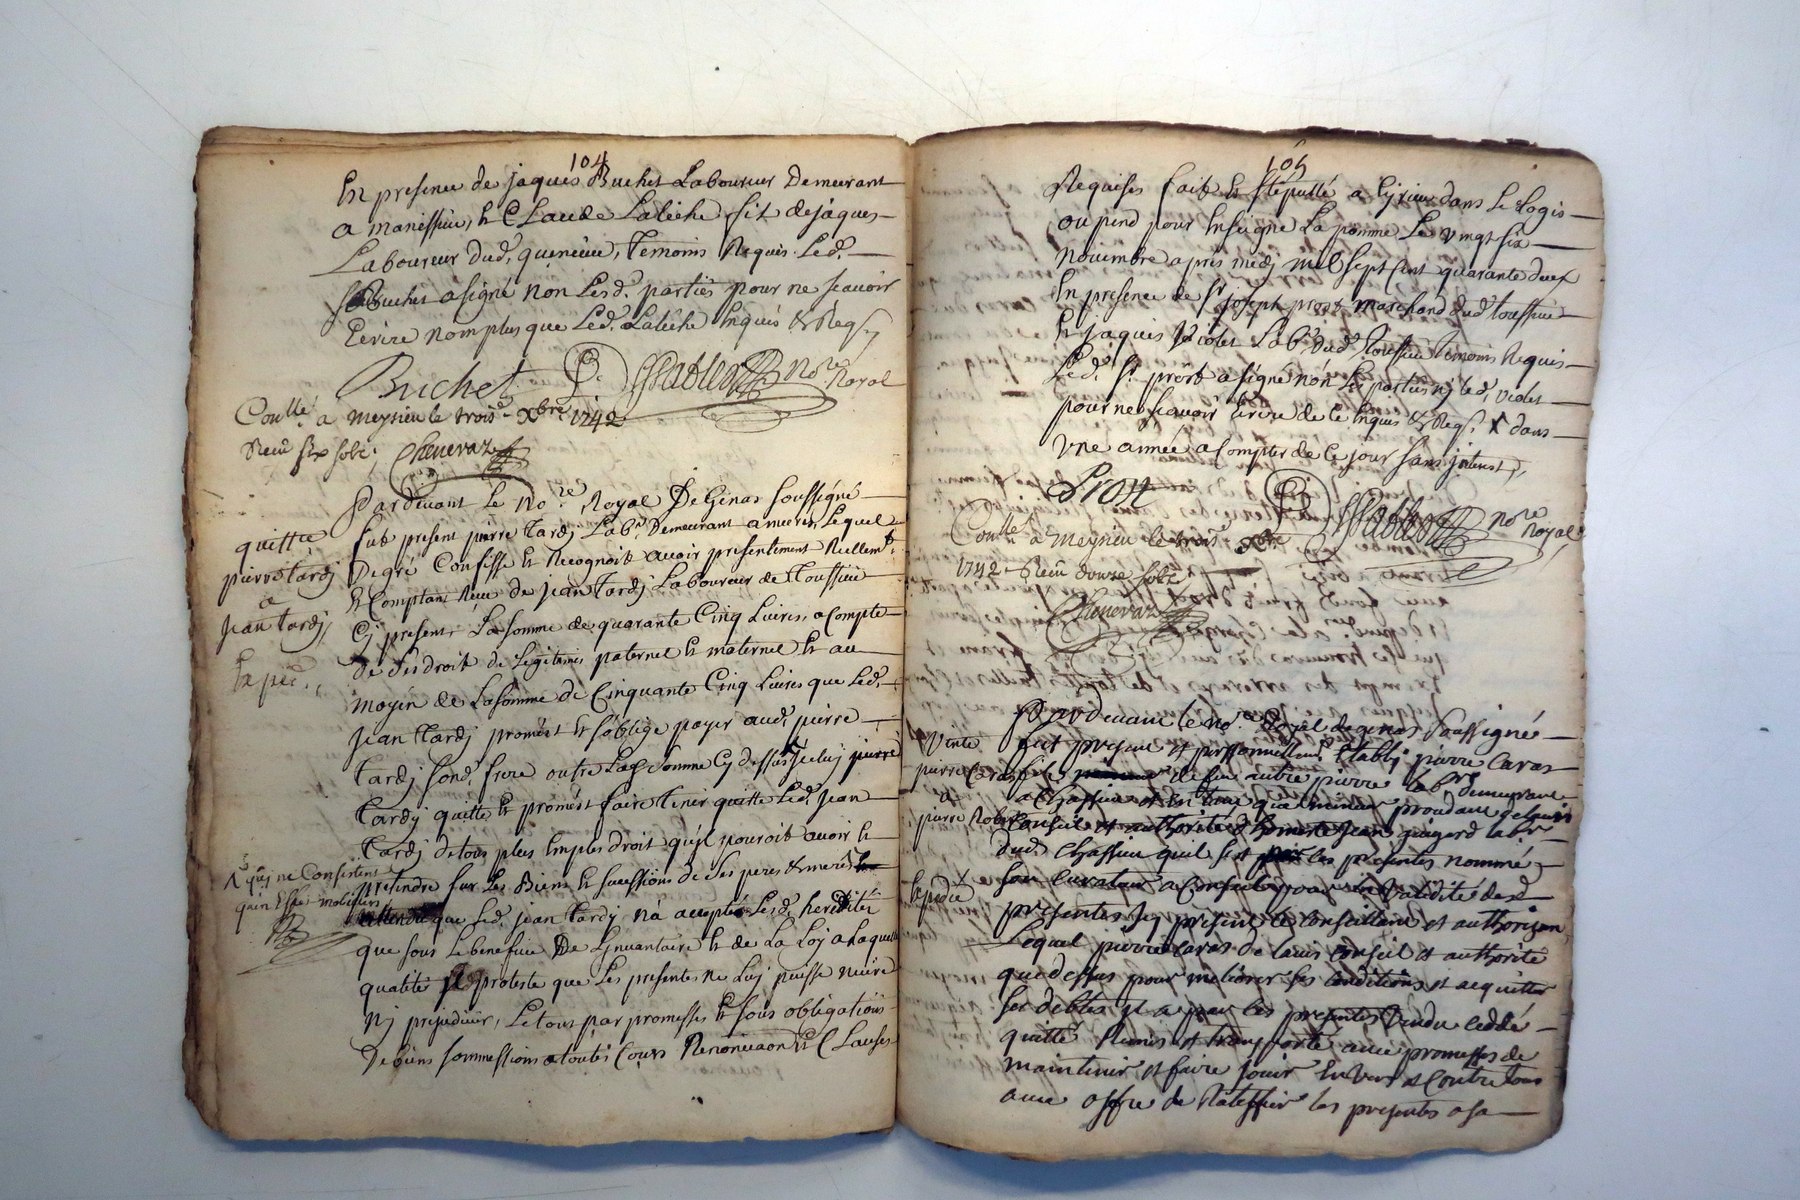 104
En presence de jaques Buchet Laboureur Demeurant
a manissieu, & Claude Laleche fils de jaques
Laboureur dud. quenieu, Temoins Requis. Led.
Sr Buchet a signé non Lesd. parties pour ne scavoir
Ecrire nom plus que Led. Laleche Enquis & Reqs.
Buchet
nore Royal
Conllé a Meyzieu le trois Xbre 1742
Receu six sols. Chenevaz
quittce
pierre tardj
a
jean tardj
Expée.
Pardevant Le Nore Royal De Genas soussigné
fut present pierre tardj Labr. Demeurant a meuris, Lequel
Degré Confesse & Recognoit avoir presentement Reellemt.
& Comptant Receu de jean tardj Laboureur de Toussieu
Cy present, La somme de quarante Cinq Livres, a compte
de ses droit de Legitimes paternel & maternel & au
moyen de La somme de Cinquante Cinq Livres que Led.
jean tardj promest & s'oblige payer aud. pierre
tardj sond. frere outre La somme Cy dessus Jceluy pierre
tardj quitte & promest faire tenir quitte Led. jean
tardj de tous plus amples droit qu'il pouroit avoir &
pretendre sur Les Biens & sucessions de ses pere & mere
attendu que Led. jean tardj n'a accepté Lesd. heredités
que sous Le benefice De Ynvantaire & de La Loy a Laquelle
qualité Jl proteste que Les presentes ne Luy puisse nuire
Ny prejudicier, Le tous par promesses & sous obligations
De biens sommessions a toutes Cours Renonciaon & Clauses
105
Requises fait & stepullé a Cyrieu dans Le Logis
ou pend pour Enseigne La pomme Le vingt six
Novembre apres midj mil sept Cent quarante deux
En presence de Sr joseph prost marchand dud. toussieu
& jaques violet Labr. dud. Toussieu Temoins Requis
Led. Sr. prost a signé non Les parties nj led. violet
pour ne scavoir Ecrire de ce Enquis & Reqs. dans
Une année a compter de Ce jour sans jnterest,
Prost
nore Royal
Conllé a Meyzieu le trois Xbre
1742 Receu douze sols
Chenevaz
Vente
pierre Caras
a
pierre Robert
Expedié
Pardevant le nore Royal de genas soussigné
fut present et personnellemt. Etably pierre Caras
fils de feu autre pierre labr. demeurant
a Chassieu
Conseil et authorité d'honneste Jean guigard labr.
dud. Chassieu quil a par les presentes nommé
son Curateur a Conseil pour la Validité desd.
presentes Jcy present le Conseillant et authorizant
Lequel pierre Caras de lavis Conseil et authorité
que dessus pour meliorer ses conditions et acquitter
ses debtes Jl a par les presentes Vendu ceddé
quitté Remis et transporté avec promesses de
maintenir et faire Jouir Envers et Contre tous
avec offre de Ratiffier les presentes a sa